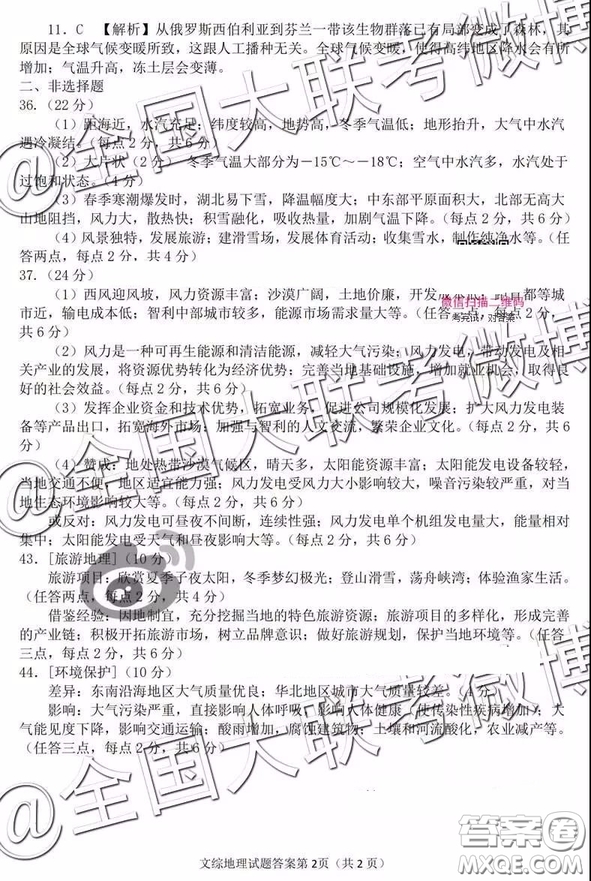 11．C 【解析】从俄罗斯西伯利亚到芬兰一带该生物群落已有局部变成了森林，其
原因是全球气候变暖所致，这跟人工播种无关。全球气候变暖，使得高纬地区降水会有所
增加；气温升高，冻土层会变薄。
二、非选择题
36．（22 分）
（1）距海近，水汽充足；纬度较高，地势高，冬季气温低；地形抬升，大气中水汽
遇冷凝结。（每点 2 分，共 6 分）
（2）大片状（2 分） 冬季气温大部分为－15℃～－18℃；空气中水汽多，水汽处于
过饱和状态。（4 分）
（3）春季寒潮爆发时，湖北易下雪，降温幅度大；中东部平原面积大，北部无高大
山地阻挡，风力大，散热快；积雪融化，吸收热量，加剧气温下降。（每点 2 分，共 6 分）
（4）风景独特，发展旅游；建滑雪场，发展体育活动；收集雪水，制作纯净水等。（任
答两点，每点 2 分，共 4 分）
37．（24 分）
（1）西风迎风坡，风力资源丰富；沙漠广阔，土地价廉，开发 都等城
市近，输电成本低；智利中部城市较多，能源市场需求量大等。（任答 点，每点 2 分，
共 6 分）
微信扫描二维码
考完试，对答案
（2）风力是一种可再生能源和清洁能源，减轻大气污染；风力发电，带动发电及相
关产业的发展，将资源优势转化为经济优势；完善当地基础设施，增加就业机会，取得良
好的社会效益。（每点 2 分，共 6 分）
（3）发挥企业资金和技术优势，拓宽业务，促进公司规模化发展；扩大风力发电装
备等产品出口，拓宽海外市场；加强与智利的人文交流，繁荣企业文化。（每点 2 分，共 6
分）
（4）赞成：地处热带沙漠气候区，晴天多，太阳能资源丰富；太阳能发电设备较轻，
当地交通不便，地区适宜能力强；风力发电受风力大小影响较大，噪音污染较严重，对当
地生态环境影响较大等。（每点 2 分，共 6 分）
或反对：风力发电可昼夜不间断，连续性强；风力发电单个机组发电量大，能量相对
集中；太阳能发电受天气和昼夜影响大等。（每点 2 分，共 6 分）
43．[旅游地理]（10 分）
旅游项目：欣赏夏季子夜太阳，冬季梦幻极光；登山滑雪，荡舟峡湾；体验渔家生活。
（任答两点，每点 2 分，共 4 分）
借鉴经验：因地制宜，充分挖掘当地的特色旅游资源；旅游项目的多样化，形成完善
的产业链；积极开拓旅游市场，树立品牌意识；做好旅游规划，保护当地环境等。（任答
三点，每点 2 分，共 6 分）
44．[环境保护]（10 分）
差异：东南沿海地区大气质量优良；华北地区城市大气质量较差。（4 分）
影响：大气污染严重，直接影响人体呼吸，影响人体健康（使传染性疾病增加）；大
气能见度下降，影响交通运输；酸雨增加，腐蚀建筑物；土壤和河流酸化，农业减产等。
（任答三点，每点 2 分，共 6 分）
文综地理试题答案第 2页（共 2 页）
@全国大联考微博
@全国大联考微博
@全国大联考微博
答案圈
MXQE.COM